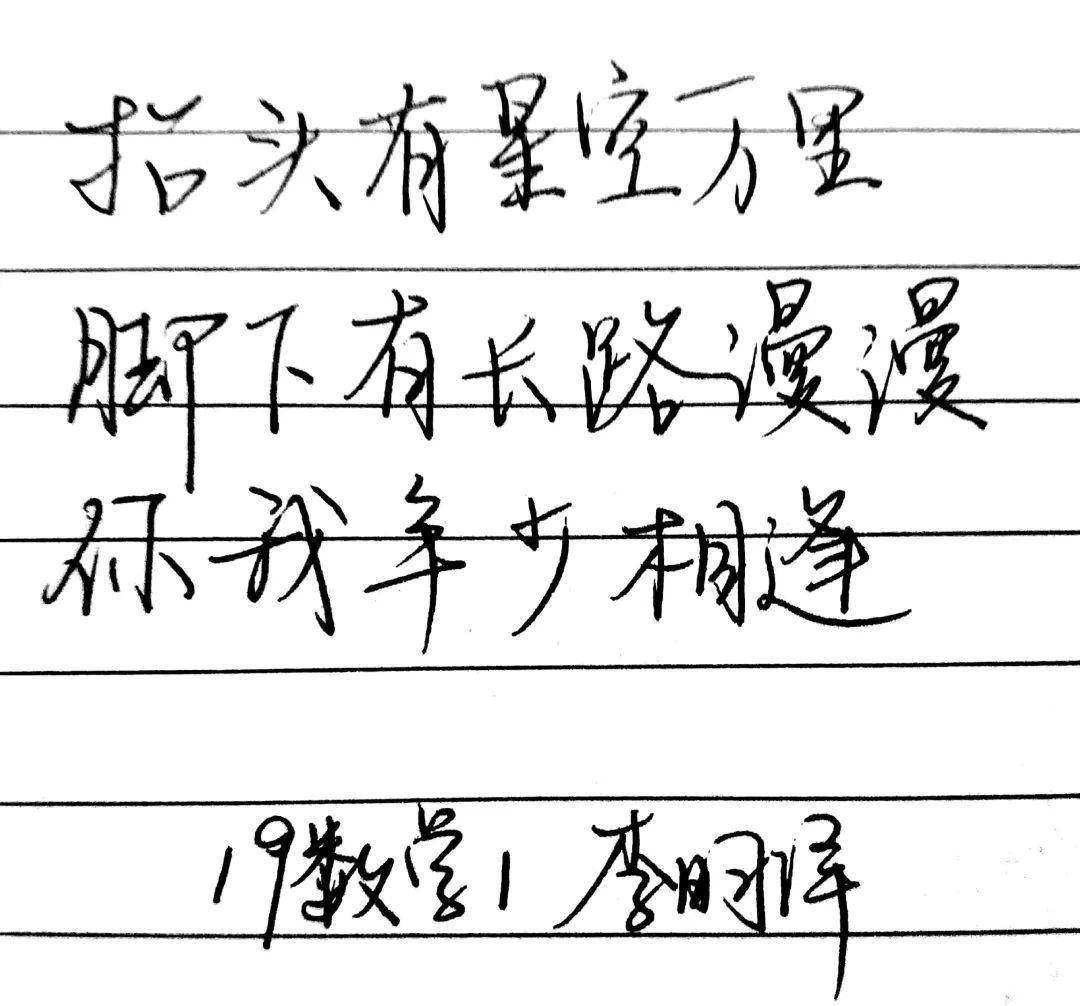 抬头有星空万里
脚下有长路漫漫
你我年少相逢
19数学1 李明泽